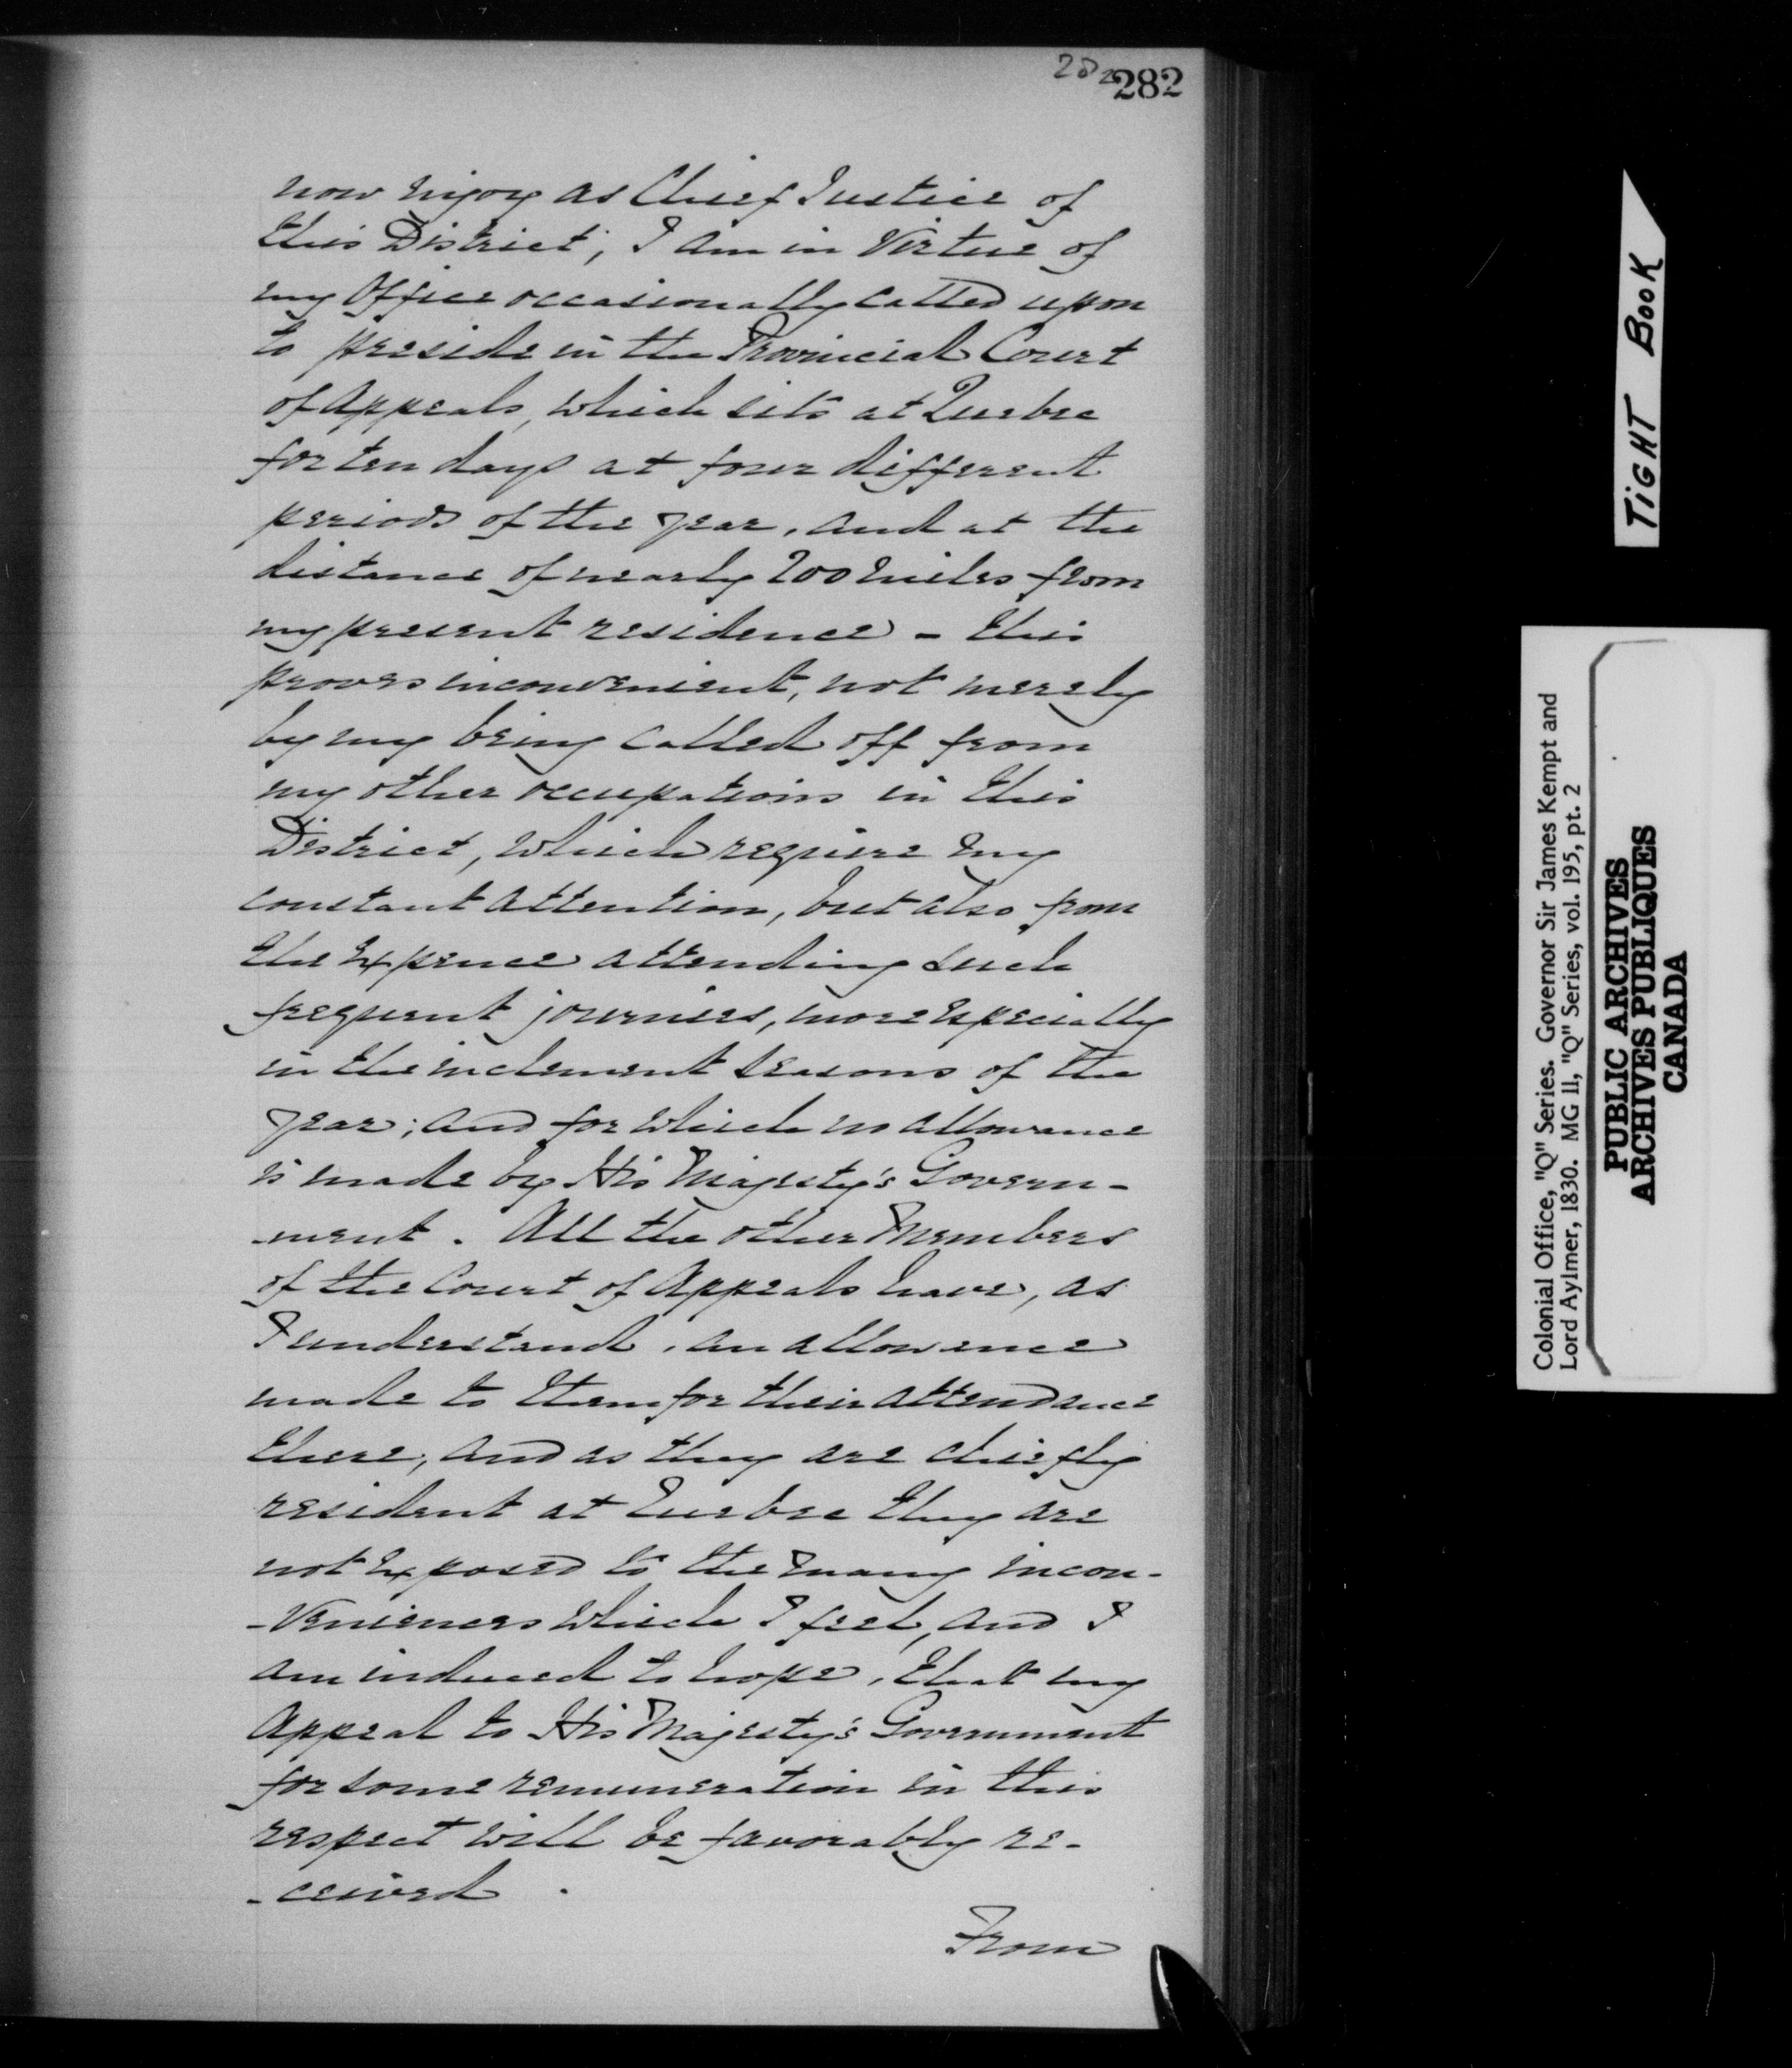 282 282
now enjoy as Chief Justice of
this District, I am in Virtue of
my Office occasionally called upon
to preside in the Provincial Court
of Appeals, which sits at Quebec
for ten days at four different
periods of the year, and at the
distance of nearly 200 miles from
my present residence - this
proves inconvenient, not merely
by my being called off from
my other occupations in this
District, which require my
constant attention, but also from
the expence attending such
frequent journies, more especially
in the inclement seasons of the
year; and for which no allowance
is made by His Majesty's Govern-
-ment. All the other Members
of the Court of Appeals have, as
I understand, an allowance
made to them for their attendance
there, and as they are chiefly
resident at Quebec they are
not exposed to the many incon-
-veniences which I feel, and I
am induced to hope, that my
Appeal to His Majesty's Government
for some remuneration in this
respect will be favorably re-
-ceived.
From
TIGHT BOOK
Colonial Office, "Q" Series. Governor Sir James Kempt and
Lord Aylmer, 1830. MG 11, "Q" Series, vol. 195, pt. 2
PUBLIC ARCHIVES
ARCHIVES PUBLIQUES
CANADA